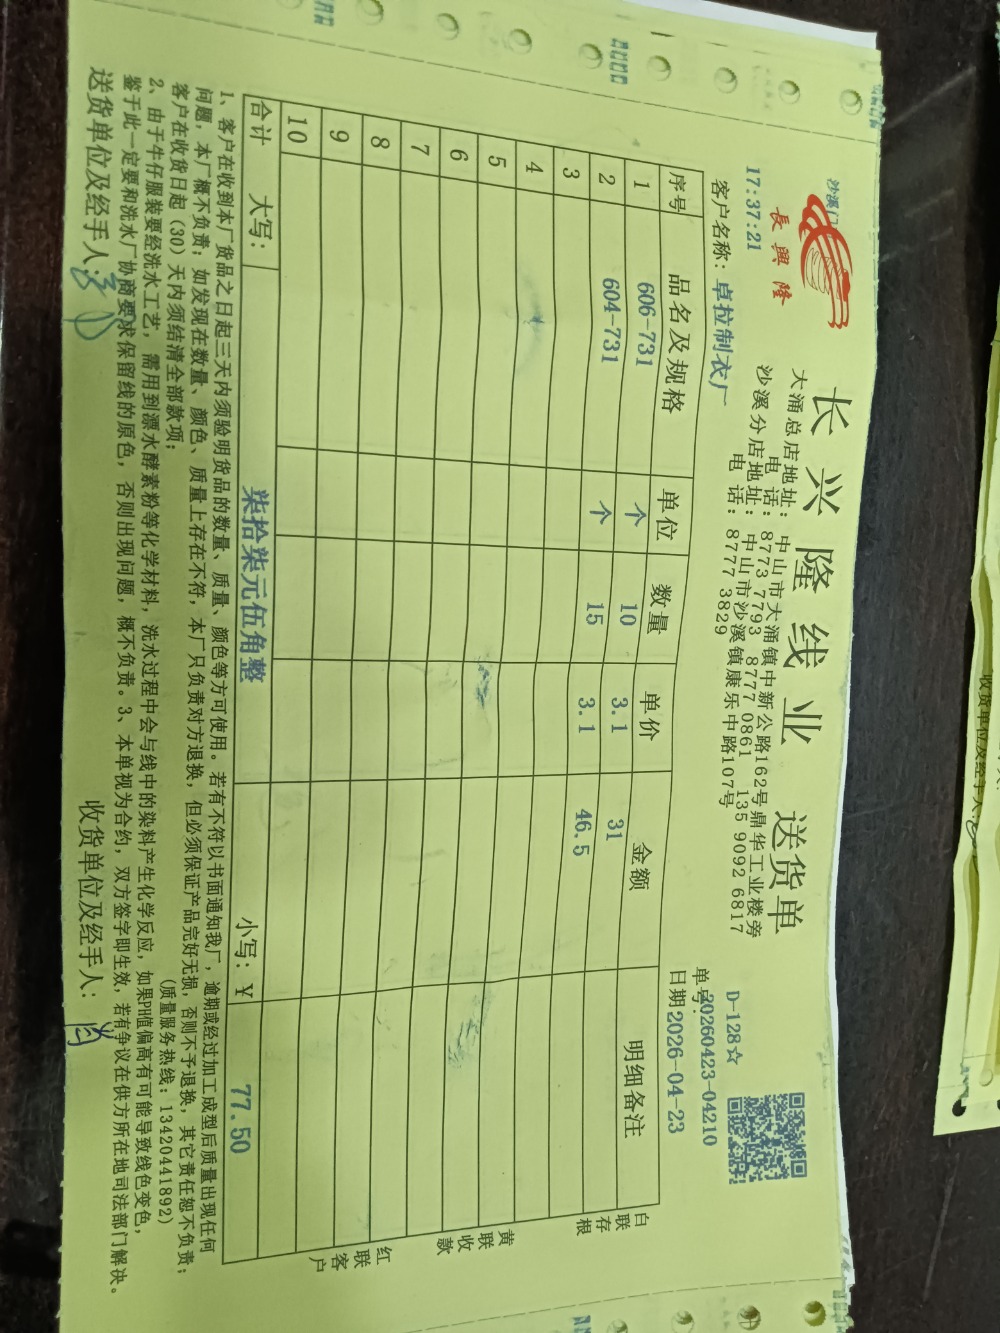 長興隆
长兴隆线业 送货单
大涌总店地址：中山市大涌镇中新公路162号鼎华工业楼旁
电 话：8773 7793 8777 0861 135 9092 6817
沙溪分店地址：中山市沙溪镇康乐中路107号
电 话：8777 3829
D-128☆
沙溪门
17:37:21
单号：20260423-04210
客户名称：卓拉制衣厂
日期2026-04-23
序号 品名及规格 单位 数量 单价 金额 明细备注
1 606-731 个 10 3.1 31
2 604-731 个 15 3.1 46.5
3
4
5
6
7
8
9
10
合计 大写：柒拾柒元伍角整 小写：¥ 77.50
白联存根
黄联收款
红联客户
1、客户在收到本厂货品之日起三天内须验明货品的数量、质量、颜色等方可使用。若有不符以书面通知我厂，逾期或经过加工成型后质量出现任何
问题，本厂概不负责；如发现在数量、颜色、质量上存在不符，本厂只负责对方退换，但必须保证产品完好无损，否则不予退换，其它责任恕不负责；
客户在收货日起（30）天内须结清全部款项； （质量服务热线：13420441892）
2、由于牛仔服装要经洗水工艺，需用到漂水酵素粉等化学材料，洗水过程中会与线中的染料产生化学反应，如果PH值偏高有可能导致线色变色，
鉴于此一定要和洗水厂协商要求保留线的原色，否则出现问题，概不负责。3、本单视为合约，双方签字即生效，若有争议在供方所在地司法部门解决。
送货单位及经手人： 收货单位及经手人：
收货单位及经手人：